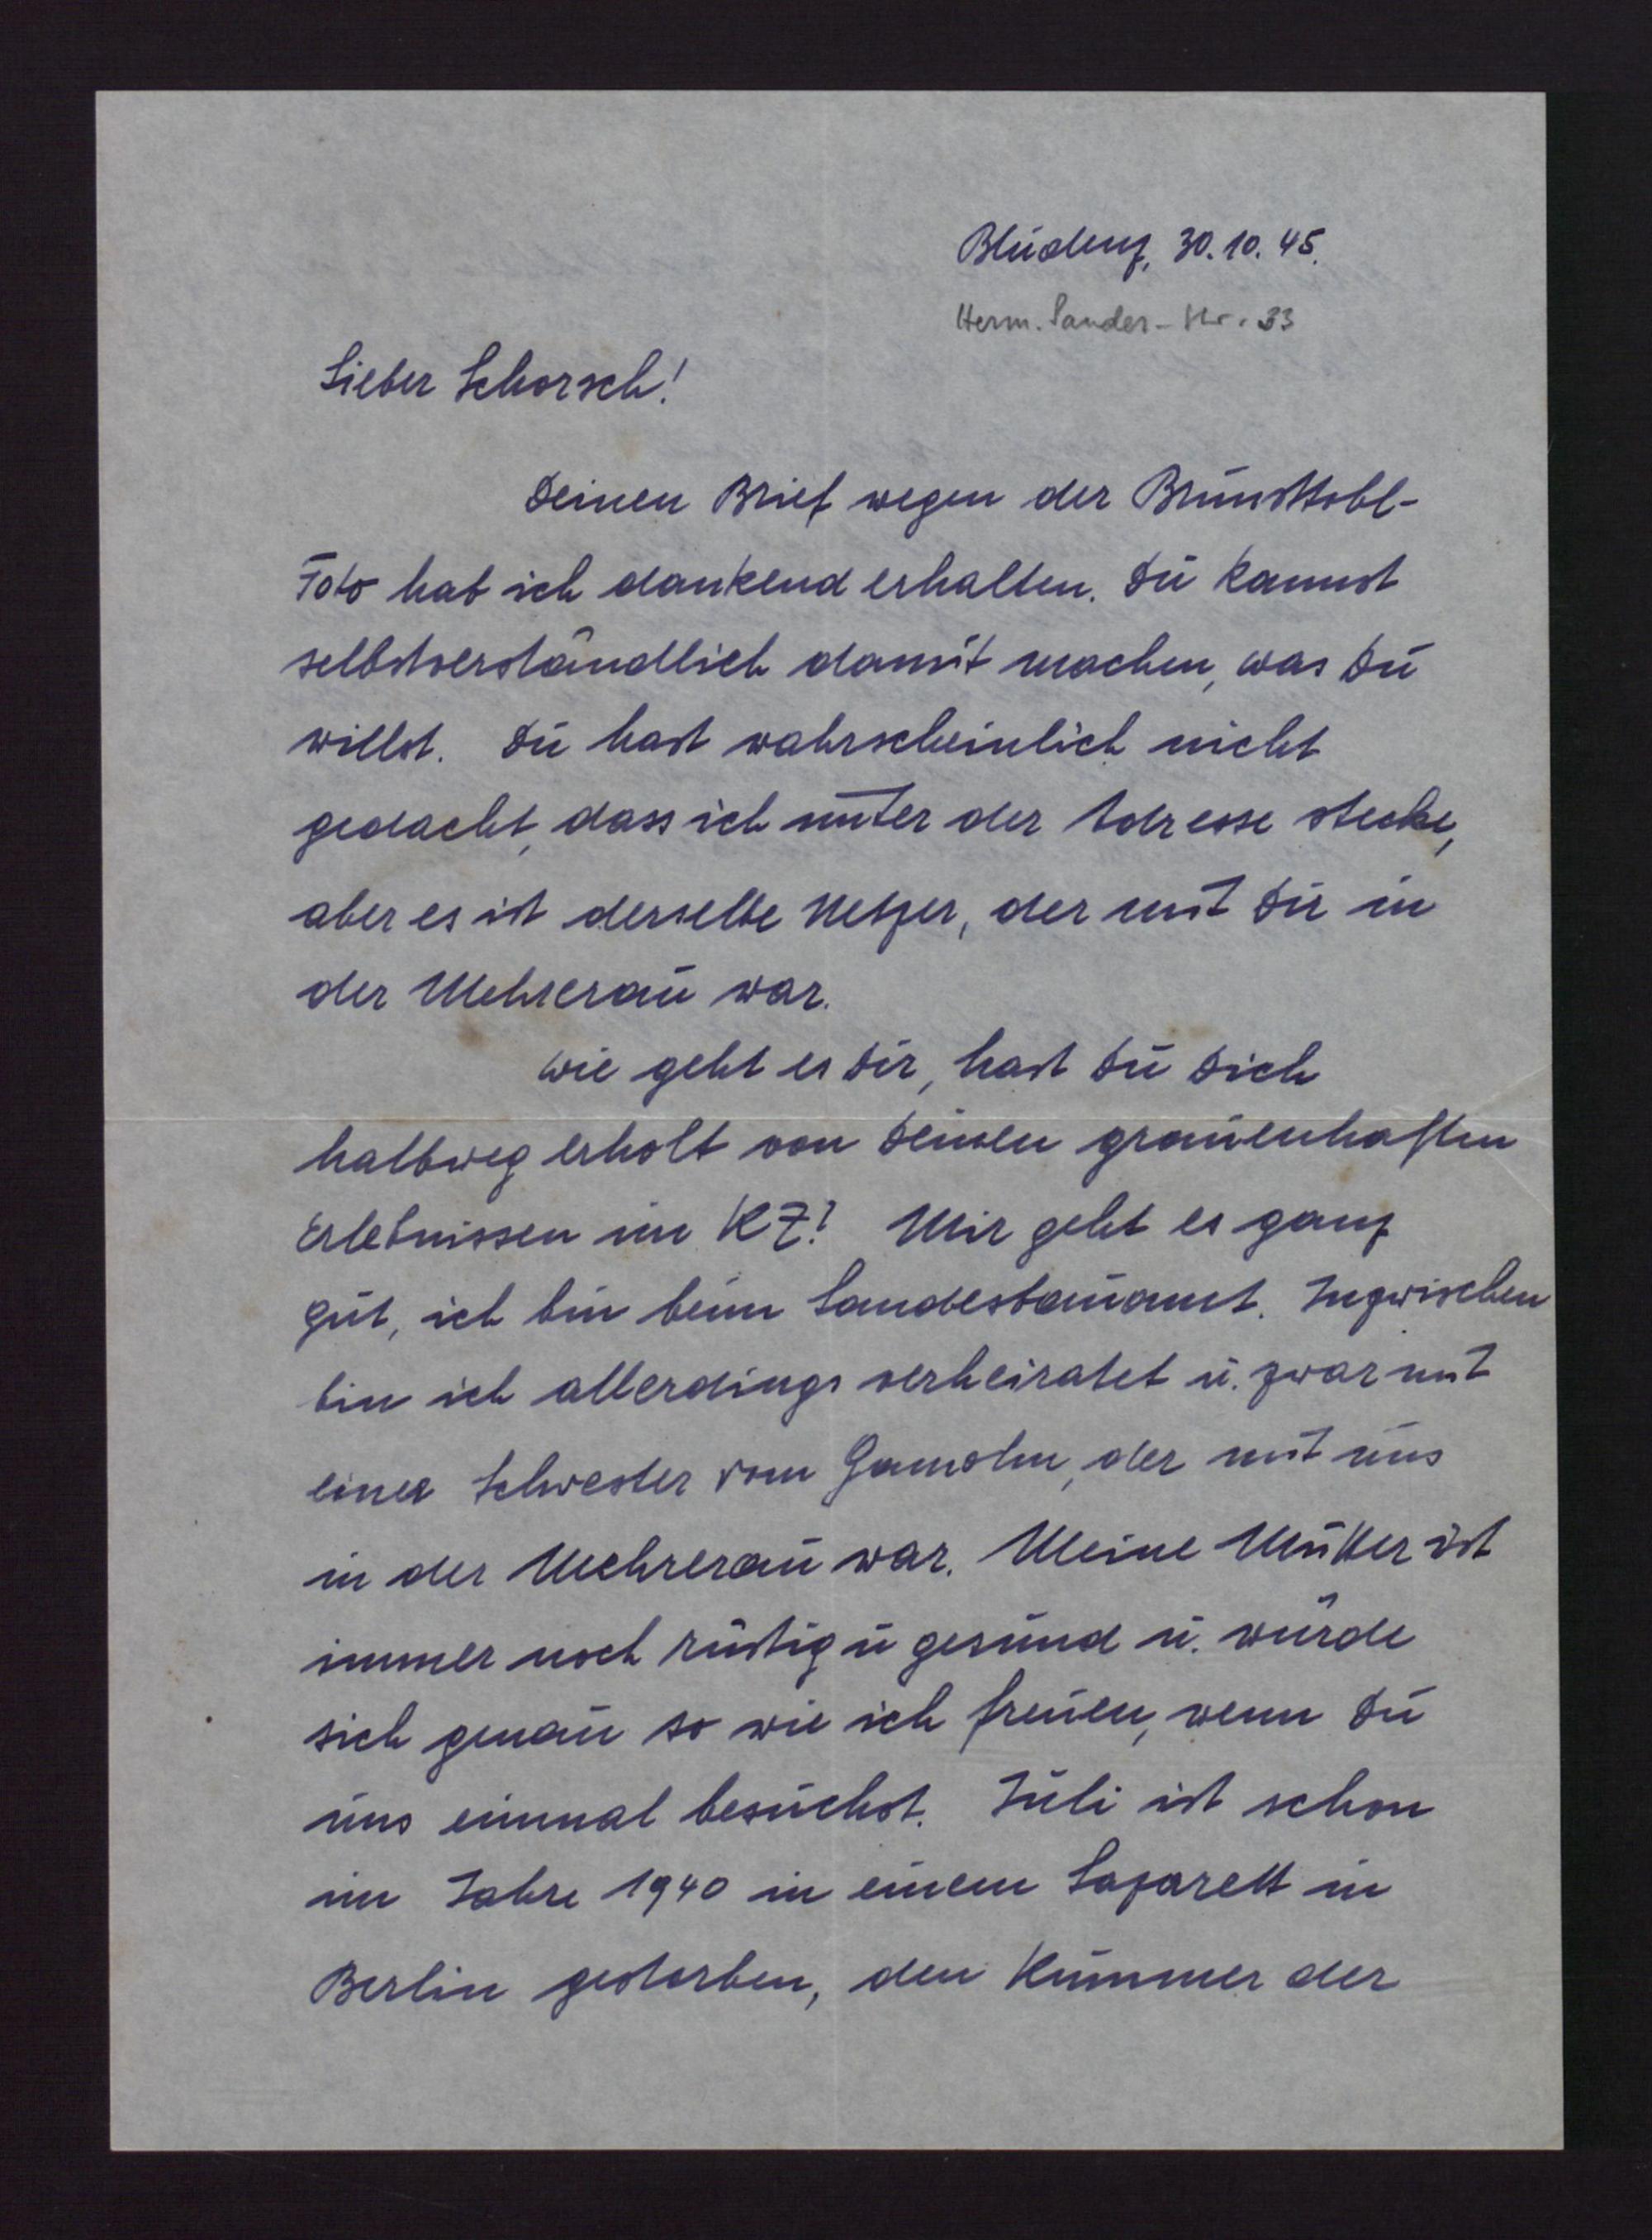 Bludenz, 30.10.45.
Herm. Sander-Str. 33
Lieber Schorsch!
Deinen Brief wegen der
Foto hab ich dankend erhalten. Du kannst
selbstverständlich damit machen, was Du
willst. Du hast wahrscheinlich nicht
gedacht, dass ich unter der Adresse stecke,
aber es ist derselbe Netzer, der mit Dir in
der Mehrerau war.
Wie geht es Dir, hast Du Dich
halbweg erholt von Deinen grauenhaften
Erlebnissen im KZ? Mir geht es ganz
gut, ich bin beim Landesbauamt. Inzwischen
bin ich allerdings verheiratet u. zwar mit
einer Schwester vom Gamohn, der mit uns
in der Mehrerau war. Meine Mutter ist
immer noch rüstig u gesund u. würde
sich genau so wie ich freuen, wenn Du
uns einmal besuchst. Juli ist schon
im Jahre 1940 in einem Lazarett in
Berlin gestorben, den Kummer der